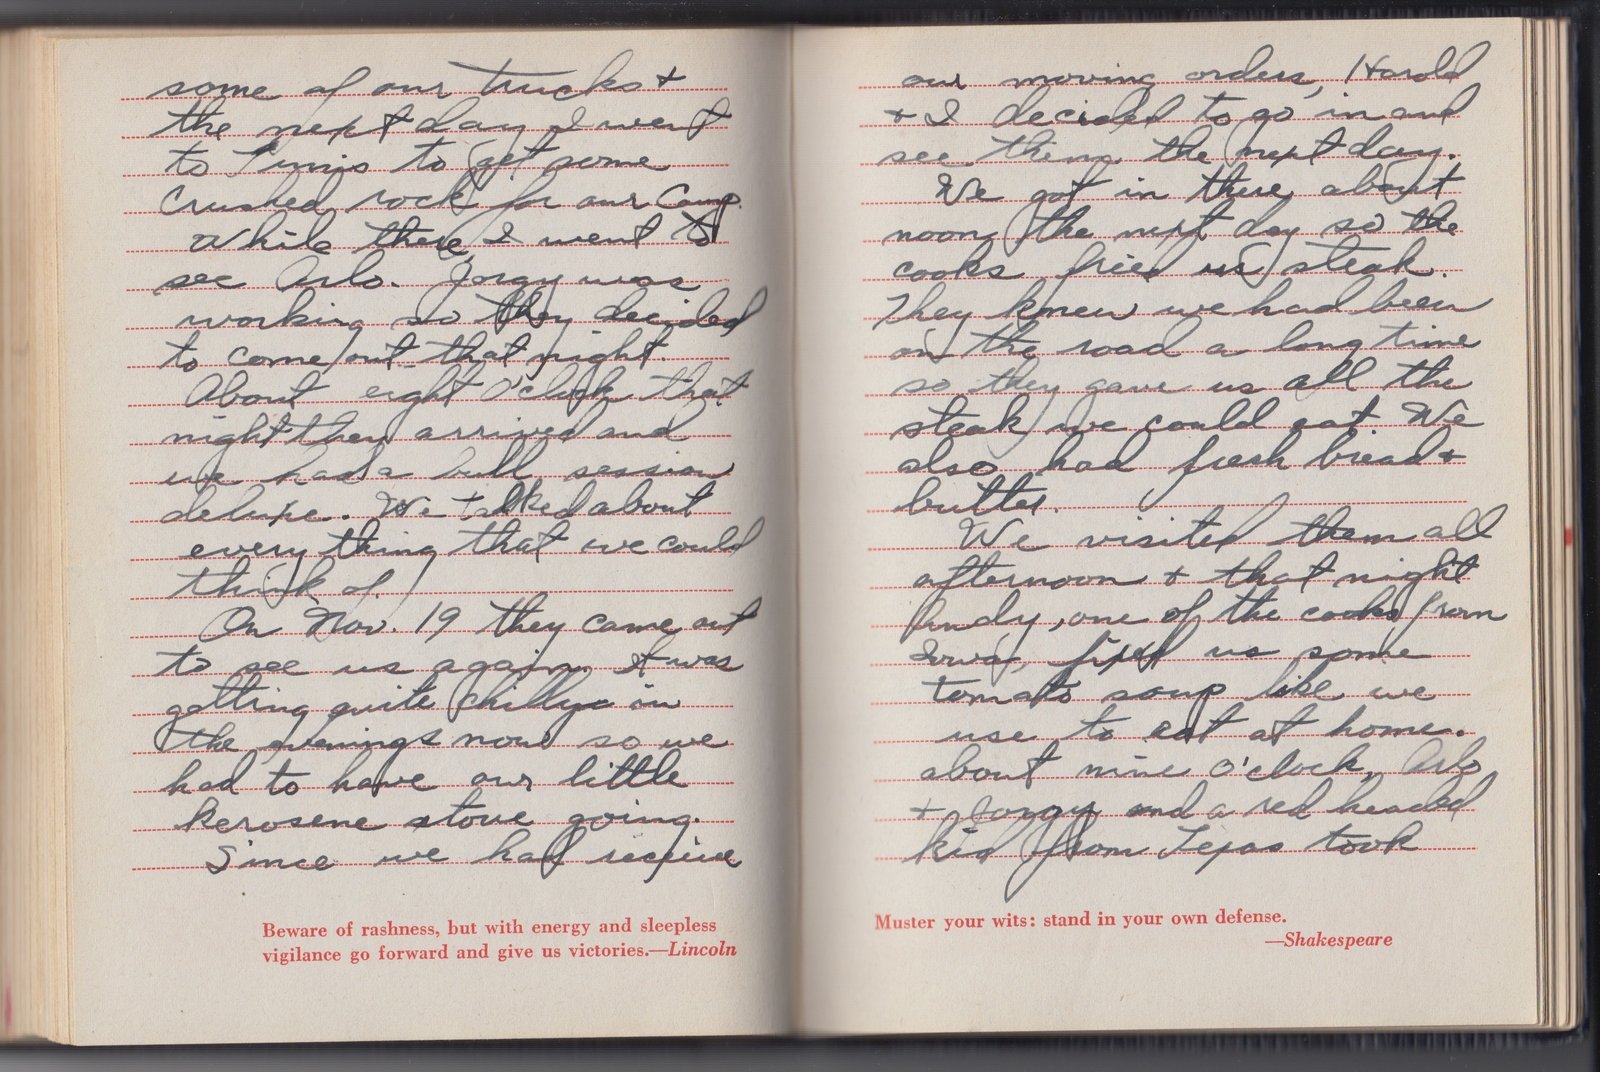 some of our trucks +
the next day I went
to Tunis to get some
crushed rock for our Camp.
While there I went to
see Arlo. Jorgy was
working so they decided
to come out that night.
About eight O'clock that
night they arrived and
we had a bull session
deluxe. We talked about
every thing that we could
think of.
On Nov. 19 they came out
to see us again. It was
getting quite chilly in
the evenings now so we
had to have our little
kerosene stove going.
Since we had recieve
Beware of rashness, but with energy and sleepless
vigilance go forward and give us victories.—Lincoln
our moving orders, Harold
+ I decided to go in and
see them the next day.
We got in there about
noon the next day so the
cooks fried us steak.
They knew we had been
on the road a long time
so they gave us all the
steak we could eat. We
also had fresh bread +
butter.
We visited them all
afternoon + that night
Andy, one of the cooks from
Iowa, fixed us some
tomato soup like we
use to eat at home.
about nine O'clock, Arlo
+ Jorgy and a red headed
kid from Texas took
Muster your wits: stand in your own defense.
—Shakespeare